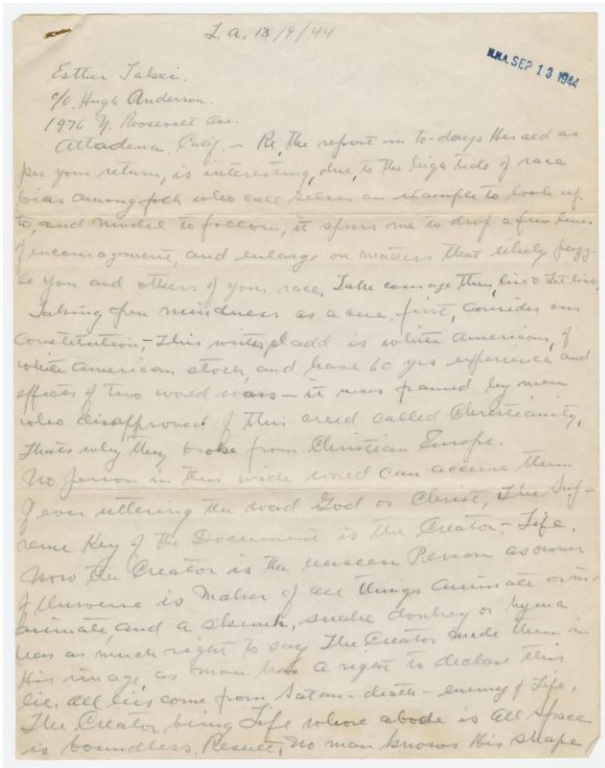 L.A. 13/9/44
W.R.A. SEP 13 1944
Esther Takei.
c/o. Hugh Anderson.
1976 N. Roosevelt Ave.
Altadena, Calif. – Re, the report in to-days Herald as
per your return, is interesting, due, to the high tide of race
bias among folk who call selves an example to look up
to, and model to follow, it spurs me to drop a few lines
of encouragment, and enlarge on matters that likely puzz-
le you and others of your race. Take courage then, live & let live.
Taking open mindness as a cue, first, consider our
Constitution, – This writer, I add is white American, of
white American stock, and have 60 yrs experience and
effects of two world wars – it was framed by men
who disapproved of this creed called Christianity,
thats why they broke from Christian Europe.
No person in this wide world can accuse them
of ever uttering the word God or Christ, The Sup-
reme Key of the Document is the Creator – Life.
Now the Creator is the unseen Person as owner
of Universe is Maker of all things animate or in-
animate and a skunk, snake donkey or hyena
has as much right to say The Creator made them in
His image, as man has a right to declare this
lie. All lies come from Satan – death – enemy of Life.
The Creator being Life whose abode is all space
is boundless. Result, No man knows His shape